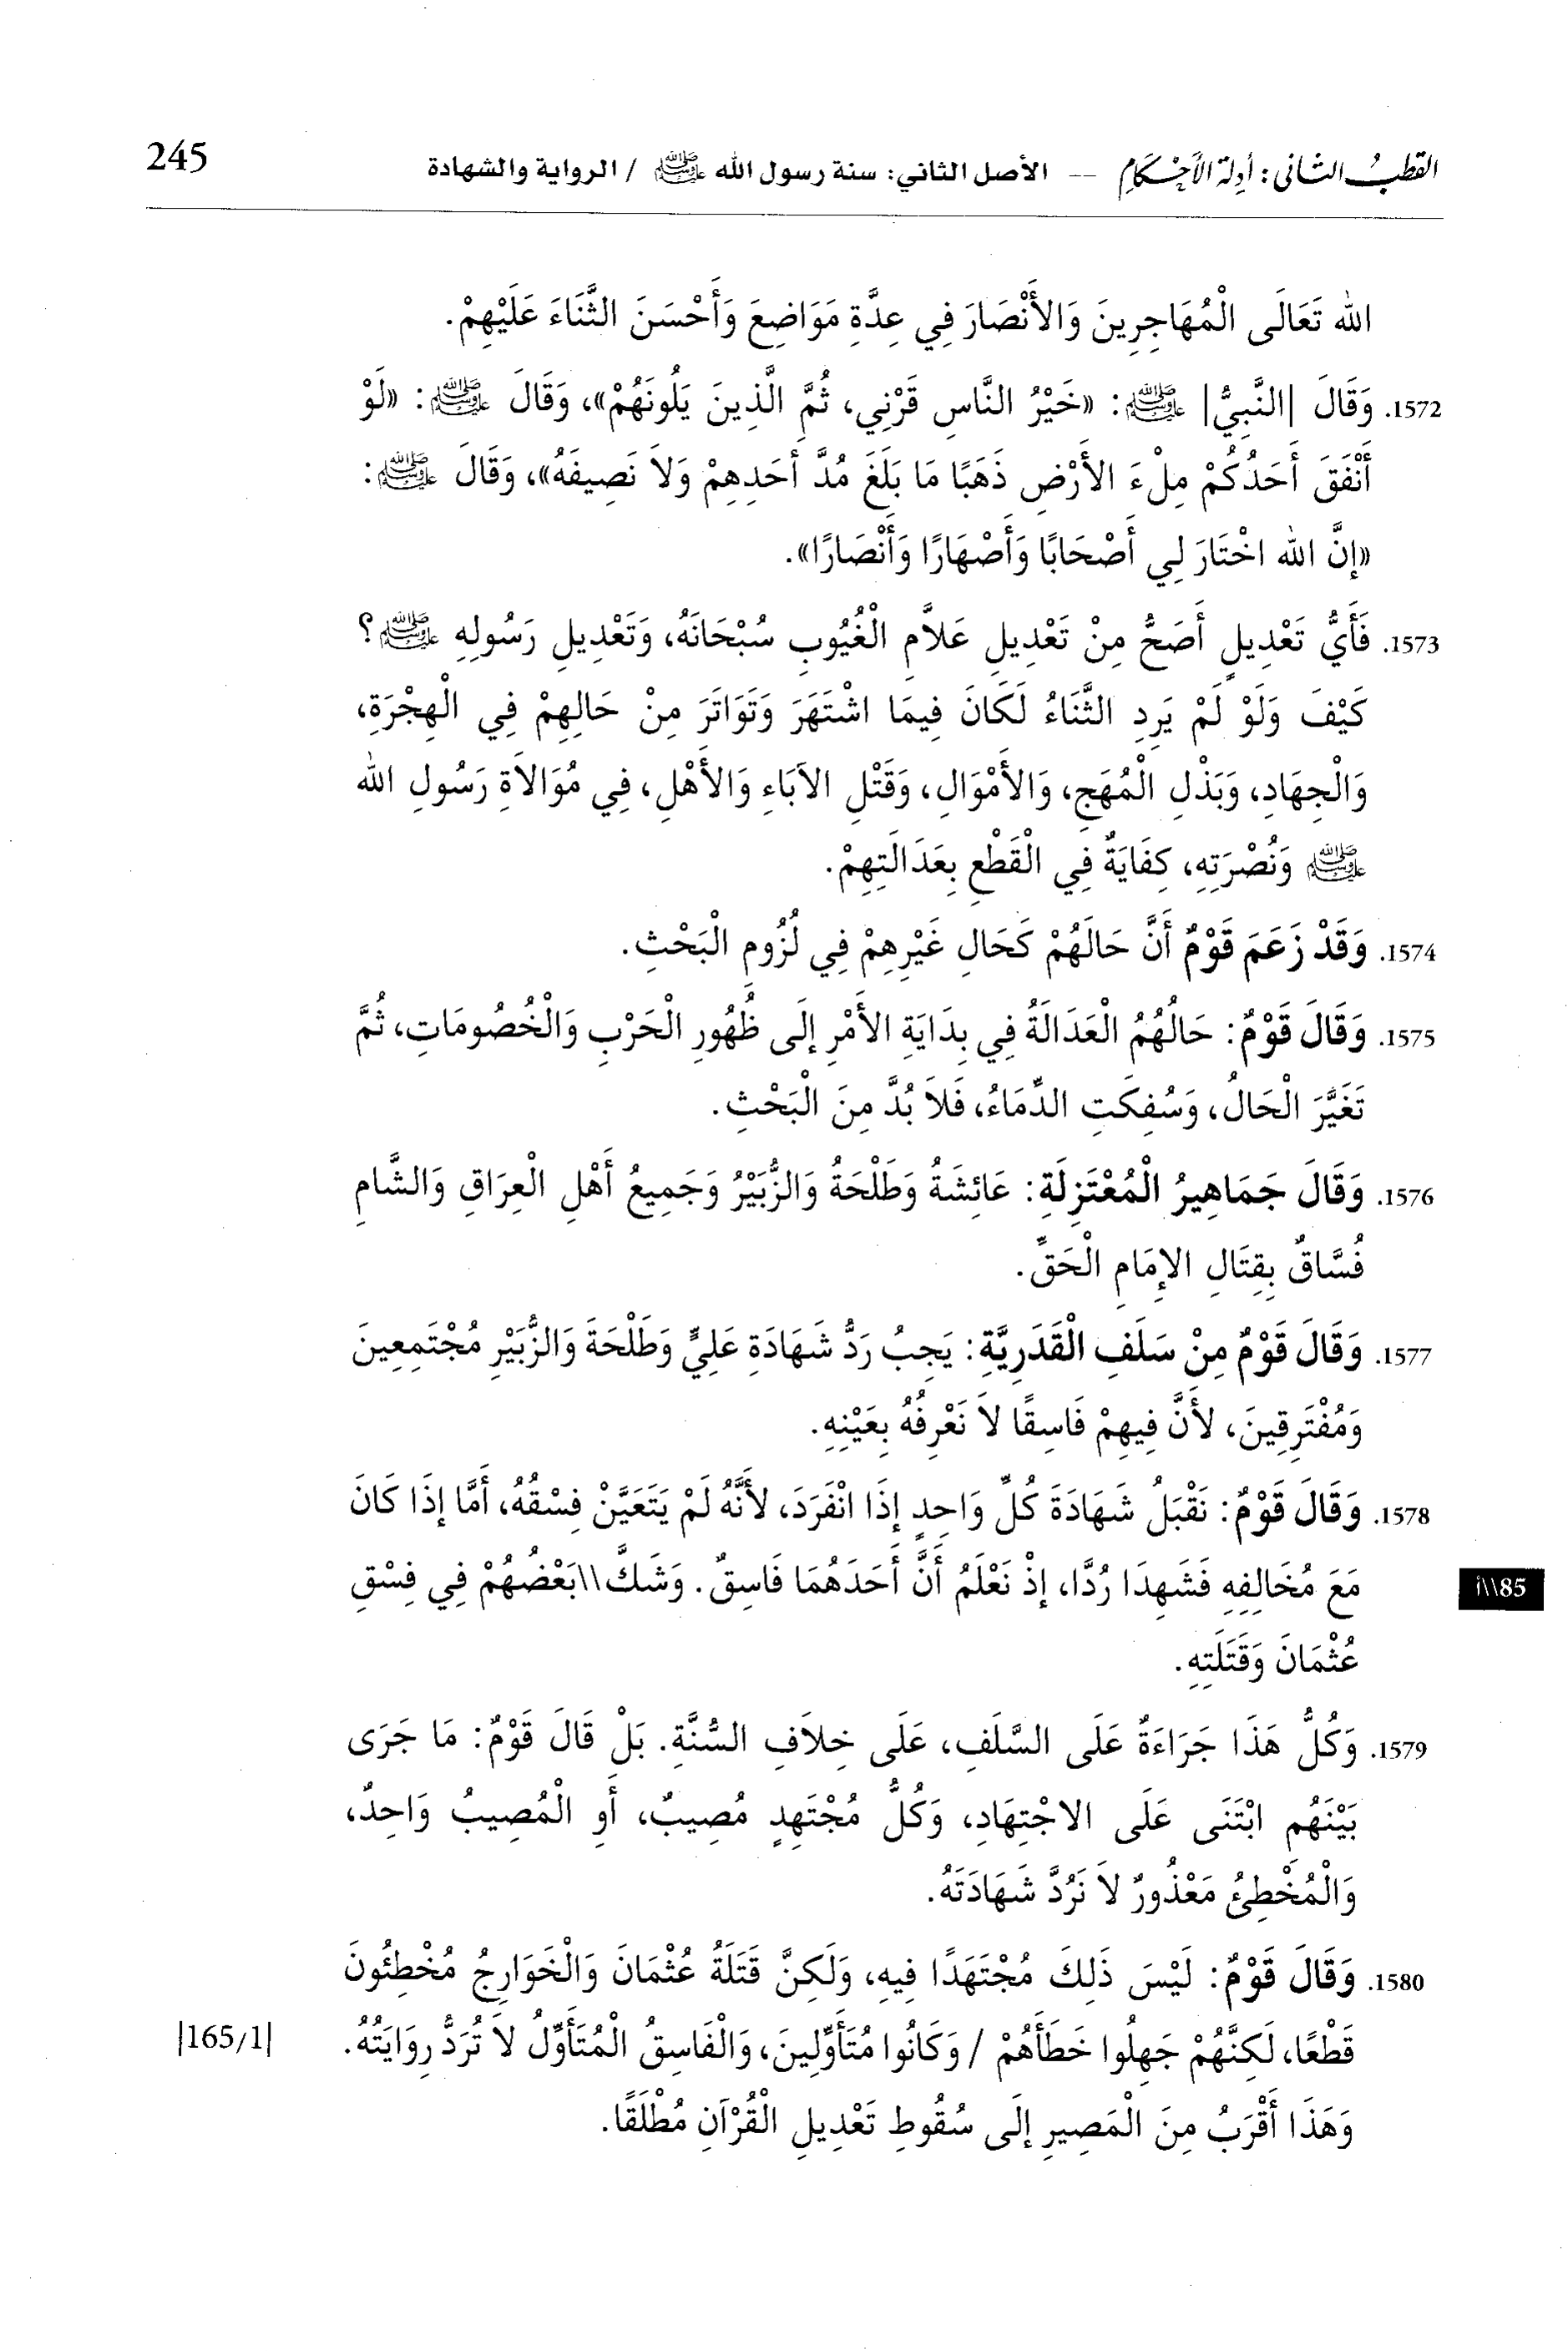 القطب الثاني: أدلة الأحكام -- الأصل الثاني: سنة رسول الله ﷺ / الرواية والشهادة 245
الله تَعَالَى الْمُهَاجِرِينَ وَالأَنْصَارَ فِي عِدَّةِ مَوَاضِعَ وَأَحْسَنَ الثَّنَاءَ عَلَيْهِمْ.
1572. وَقَالَ |النَّبِيُّ| ﷺ: «خَيْرُ النَّاسِ قَرْنِي، ثُمَّ الَّذِينَ يَلُونَهُمْ»، وَقَالَ ﷺ: «لَوْ
أَنْفَقَ أَحَدُكُمْ مِلْءَ الأَرْضِ ذَهَبًا مَا بَلَغَ مُدَّ أَحَدِهِمْ وَلاَ نَصِيفَهُ»، وَقَالَ ﷺ:
«إِنَّ الله اخْتَارَ لِي أَصْحَابًا وَأَصْهَارًا وَأَنْصَارًا».
1573. فَأَيُّ تَعْدِيلٍ أَصَحُّ مِنْ تَعْدِيلِ عَلاَّمِ الْغُيُوبِ سُبْحَانَهُ، وَتَعْدِيلِ رَسُولِهِ ﷺ؟
كَيْفَ وَلَوْ لَمْ يَرِدِ الثَّنَاءُ لَكَانَ فِيمَا اشْتَهَرَ وَتَوَاتَرَ مِنْ حَالِهِمْ فِي الْهِجْرَةِ،
وَالْجِهَادِ، وَبَذْلِ الْمُهَجِ، وَالأَمْوَالِ، وَقَتْلِ الآبَاءِ وَالأَهْلِ، فِي مُوَالاَةِ رَسُولِ الله
ﷺ وَنُصْرَتِهِ، كِفَايَةٌ فِي الْقَطْعِ بِعَدَالَتِهِمْ.
1574. وَقَدْ زَعَمَ قَوْمٌ أَنَّ حَالَهُمْ كَحَالِ غَيْرِهِمْ فِي لُزُومِ الْبَحْثِ.
1575. وَقَالَ قَوْمٌ: حَالُهُمُ الْعَدَالَةُ فِي بِدَايَةِ الأَمْرِ إِلَى ظُهُورِ الْحَرْبِ وَالْخُصُومَاتِ، ثُمَّ
تَغَيَّرَ الْحَالُ، وَسُفِكَتِ الدِّمَاءُ، فَلاَ بُدَّ مِنَ الْبَحْثِ.
1576. وَقَالَ جَمَاهِيرُ الْمُعْتَزِلَةِ: عَائِشَةُ وَطَلْحَةُ وَالزُّبَيْرُ وَجَمِيعُ أَهْلِ الْعِرَاقِ وَالشَّامِ
فُسَّاقٌ بِقِتَالِ الإِمَامِ الْحَقِّ.
1577. وَقَالَ قَوْمٌ مِنْ سَلَفِ الْقَدَرِيَّةِ: يَجِبُ رَدُّ شَهَادَةِ عَلِيٍّ وَطَلْحَةَ وَالزُّبَيْرِ مُجْتَمِعِينَ
وَمُفْتَرِقِينَ، لأَنَّ فِيهِمْ فَاسِقًا لاَ نَعْرِفُهُ بِعَيْنِهِ.
1578. وَقَالَ قَوْمٌ: نَقْبَلُ شَهَادَةَ كُلِّ وَاحِدٍ إِذَا انْفَرَدَ، لأَنَّهُ لَمْ يَتَعَيَّنْ فِسْقُهُ، أَمَّا إِذَا كَانَ
مَعَ مُخَالِفِهِ فَشَهِدَا رُدَّا، إِذْ نَعْلَمُ أَنَّ أَحَدَهُمَا فَاسِقٌ. وَشَكَّ\\بَعْضُهُمْ فِي فِسْقِ
85\\أ
عُثْمَانَ وَقَتَلَتِهِ.
1579. وَكُلُّ هَذَا جَرَاءَةٌ عَلَى السَّلَفِ، عَلَى خِلاَفِ السُّنَّةِ. بَلْ قَالَ قَوْمٌ: مَا جَرَى
بَيْنَهُم ابْتَنَى عَلَى الاجْتِهَادِ، وَكُلُّ مُجْتَهِدٍ مُصِيبٌ، أَوِ الْمُصِيبُ وَاحِدٌ،
وَالْمُخْطِئُ مَعْذُورٌ لاَ نَرُدَّ شَهَادَتَهُ.
1580. وَقَالَ قَوْمٌ: لَيْسَ ذَلِكَ مُجْتَهَدًا فِيهِ، وَلَكِنَّ قَتَلَةُ عُثْمَانَ وَالْخَوَارِجُ مُخْطِئُونَ
قَطْعًا، لَكِنَّهُمْ جَهِلُوا خَطَأَهُمْ / وَكَانُوا مُتَأَوِّلِينَ، وَالْفَاسِقُ الْمُتَأَوِّلُ لاَ تُرَدُّ رِوَايَتُهُ.
|165/1|
وَهَذَا أَقْرَبُ مِنَ الْمَصِيرِ إِلَى سُقُوطِ تَعْدِيلِ الْقُرْآنِ مُطْلَقًا.